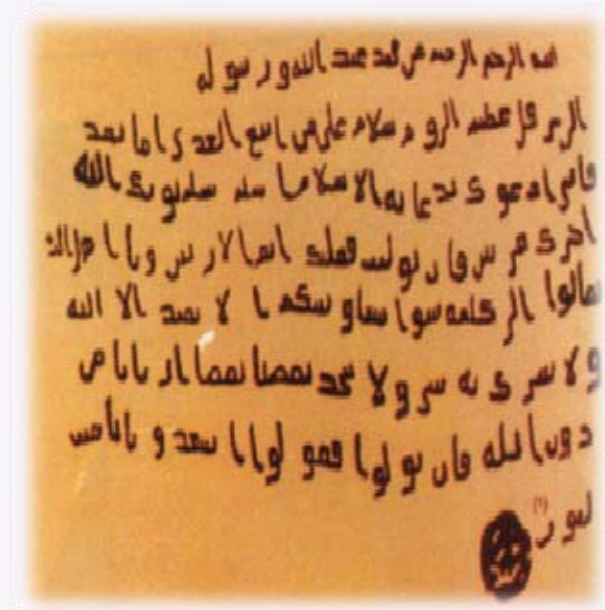 الله الرحمن الرحيم من محمد عبد الله ورسوله
الى هرقل عظيم الروم سلام على من اتبع الهدى اما بعد
فاني ادعوك بدعاية الاسلام اسلم تسلم يوتك الله
اجرك مرتين فان توليت فعليك اثم الاريسين ويا اهل الكتاب
تعالوا الى كلمة سوا بيننا وبينكم الا نعبد الا الله
ولا نشرك به شي ولا يتخذ بعضنا بعضا اربابا من
دون الله فان تولوا فقولوا اشهدوا بانا مسـ
لمون (١)